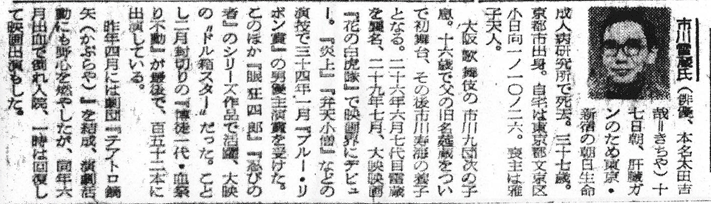 市川雷蔵氏(俳優、本名太田吉
哉=きちや)十
七日朝、肝臓ガ
ンのため東京・
新宿の朝日生命
成人病研究所で死去。三十七歳。
京都市出身。自宅は東京都文京区
小日向一ノ一〇ノ二六。喪主は雅
子夫人。
大阪歌舞伎の市川九団次の子
息。十六歳で父の旧名莚蔵をつい
で初舞台、その後市川寿海の養子
となる。二十六年六月七代目雷蔵
を襲名、二十九年七月、大映映画
『花の白虎隊』で映画界にデビュ
ー。『炎上』『弁天小僧』などの
演技で三十四年一月『ブルー・リ
ボン賞』の男優主演賞を受けた。
このほか『眠狂四郎』『忍びの
者』のシリーズ作品で活躍、大映
の“ドル箱スター”だった。こと
し二月封切りの『博徒一代・血祭
り不動』が最後で、百五十二本に
出演している。
昨年四月には劇団『テアトロ鏑
矢(かぶらや)』を結成、演劇活
動にも野心を燃やしたが、同年六
月出血で倒れ入院、一時は回復し
て映画出演もした。